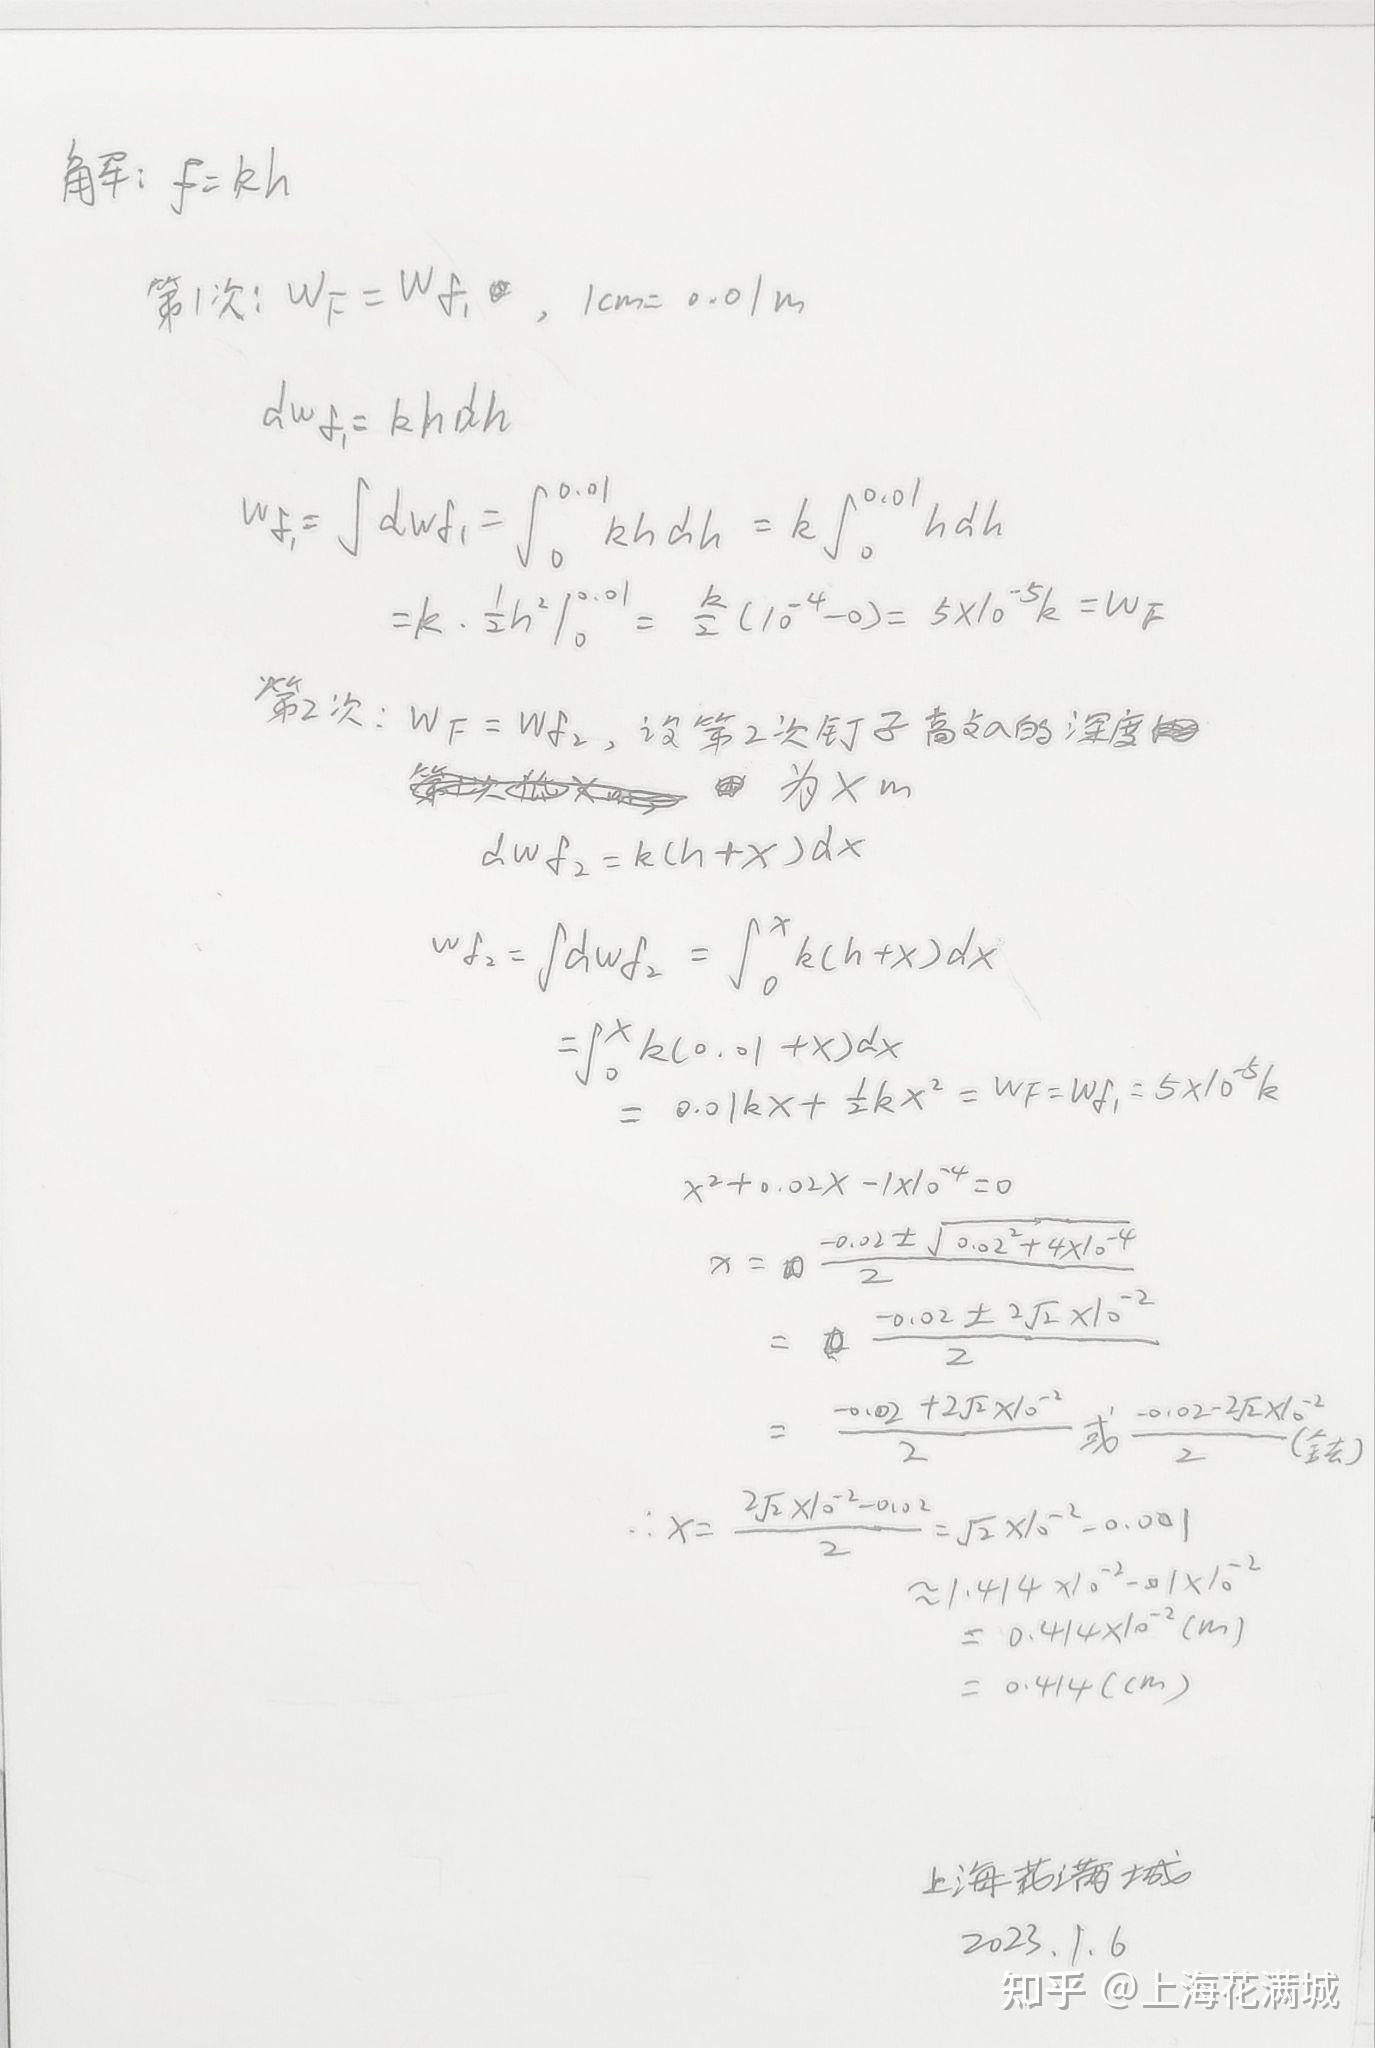 解: f=kh
第1次: W_F = W_f₁ , 1cm = 0.01m
dw_f₁ = khdh
W_f₁ = ∫dw_f₁ = ∫₀^0.01 khdh = k∫₀^0.01 hdh
= k · ½h²|₀^0.01 = k/2 (10⁻⁴-0) = 5×10⁻⁵k = W_F
第2次: W_F = W_f₂, 设第2次钉子 的深度
为 x m
dw_f₂ = k(h+x)dx
W_f₂ = ∫dw_f₂ = ∫₀^x k(h+x)dx
= ∫₀^x k(0.01+x)dx
= 0.01kx + ½kx² = W_F = W_f₁ = 5×10⁻⁵k
x²+0.02x-1×10⁻⁴=0
x = (-0.02±√(0.02²+4×10⁻⁴))/2
= (-0.02±2√2×10⁻²)/2
= (-0.02+2√2×10⁻²)/2 或 (-0.02-2√2×10⁻²)/2 (舍去)
∴ x = (2√2×10⁻²-0.02)/2 = √2×10⁻²-0.001
≈1.414×10⁻²-1×10⁻²
= 0.414×10⁻²(m)
= 0.414(cm)
上海花满城
2023.1.6
知乎 @上海花满城